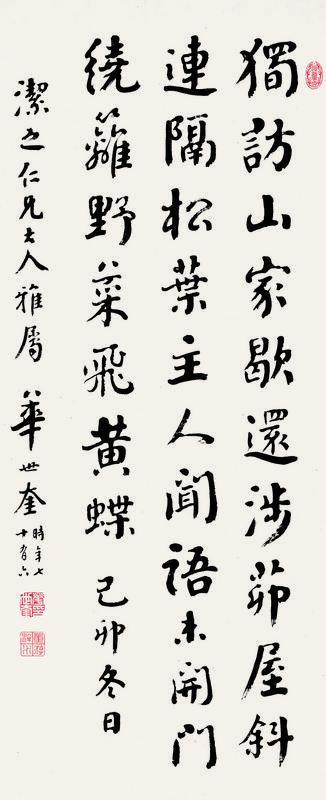 獨訪山家歇還涉茆屋斜
連隔松葉主人聞語未開門
繞籬野菜飛黃蝶 己卯冬日
潔之仁兄大人雅屬 華世奎 時年七
十有六